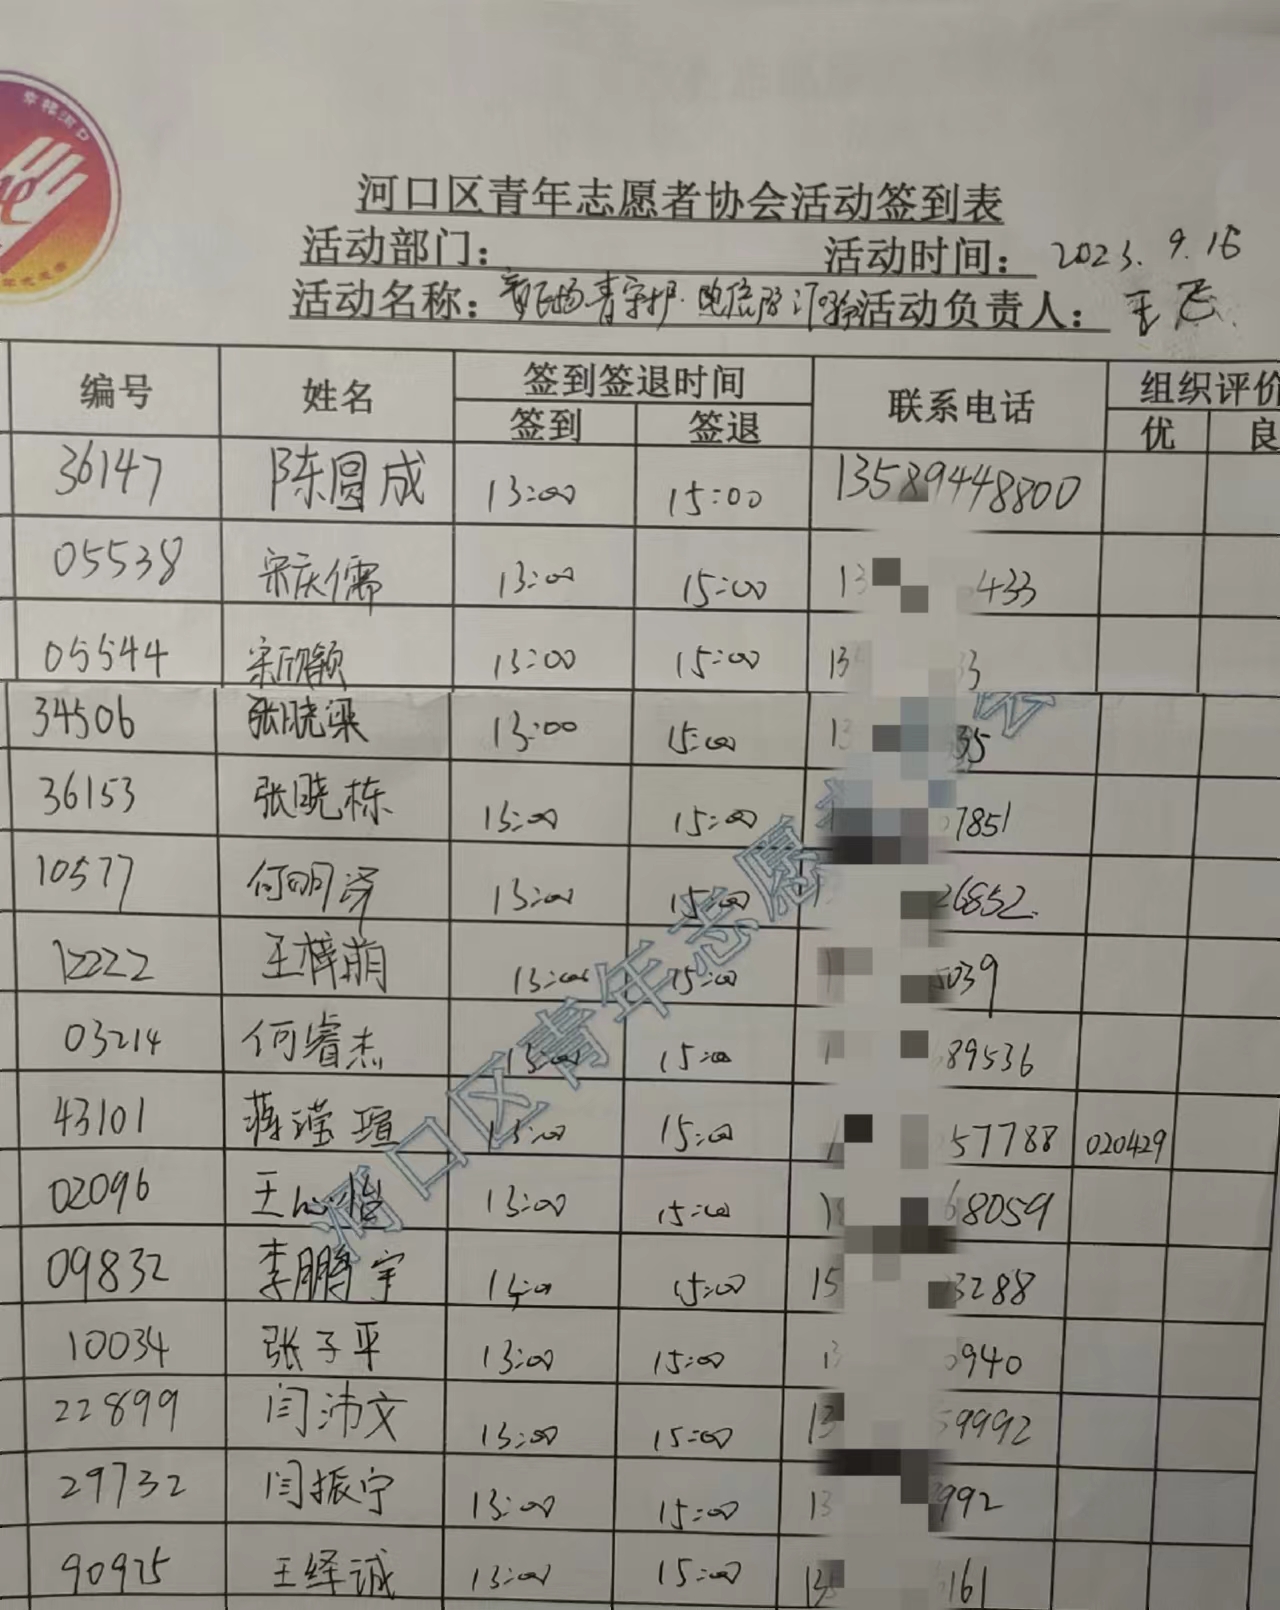 幸福河口
河口区青年志愿者协会活动签到表
活动部门： 活动时间：2023.9.16
活动名称： 活动负责人：王飞
编号 姓名 签到签退时间 联系电话 组织评价
签到 签退 优 良
36147 陈圆成 13:00 15:00 13589448800
05538 宋庆儒 13:00 15:00 13 433
05544 宋欣颖 13:00 15:00 13 33
34506 张晓梁 13:00 15:00 13 35
36153 张晓栋 13:00 15:00 1 7851
10577 何明泽 13:00 15:00 1 26852
12222 王梓萌 13:00 15:00 1 5039
03214 何睿杰 13:00 15:00 1 89536
43101 蒋滢瑄 13:00 15:00 1 57788 020429
02096 王心怡 13:00 15:00 1 68059
09832 李鹏宇 15:00 15 3288
10034 张子平 13:00 15:00 13 940
22899 闫沛文 13:00 15:00 13 59992
29732 闫振宁 13:00 15:00 13 9992
90925 王绎诚 13:00 15:00 13 6161
河口区青年志愿